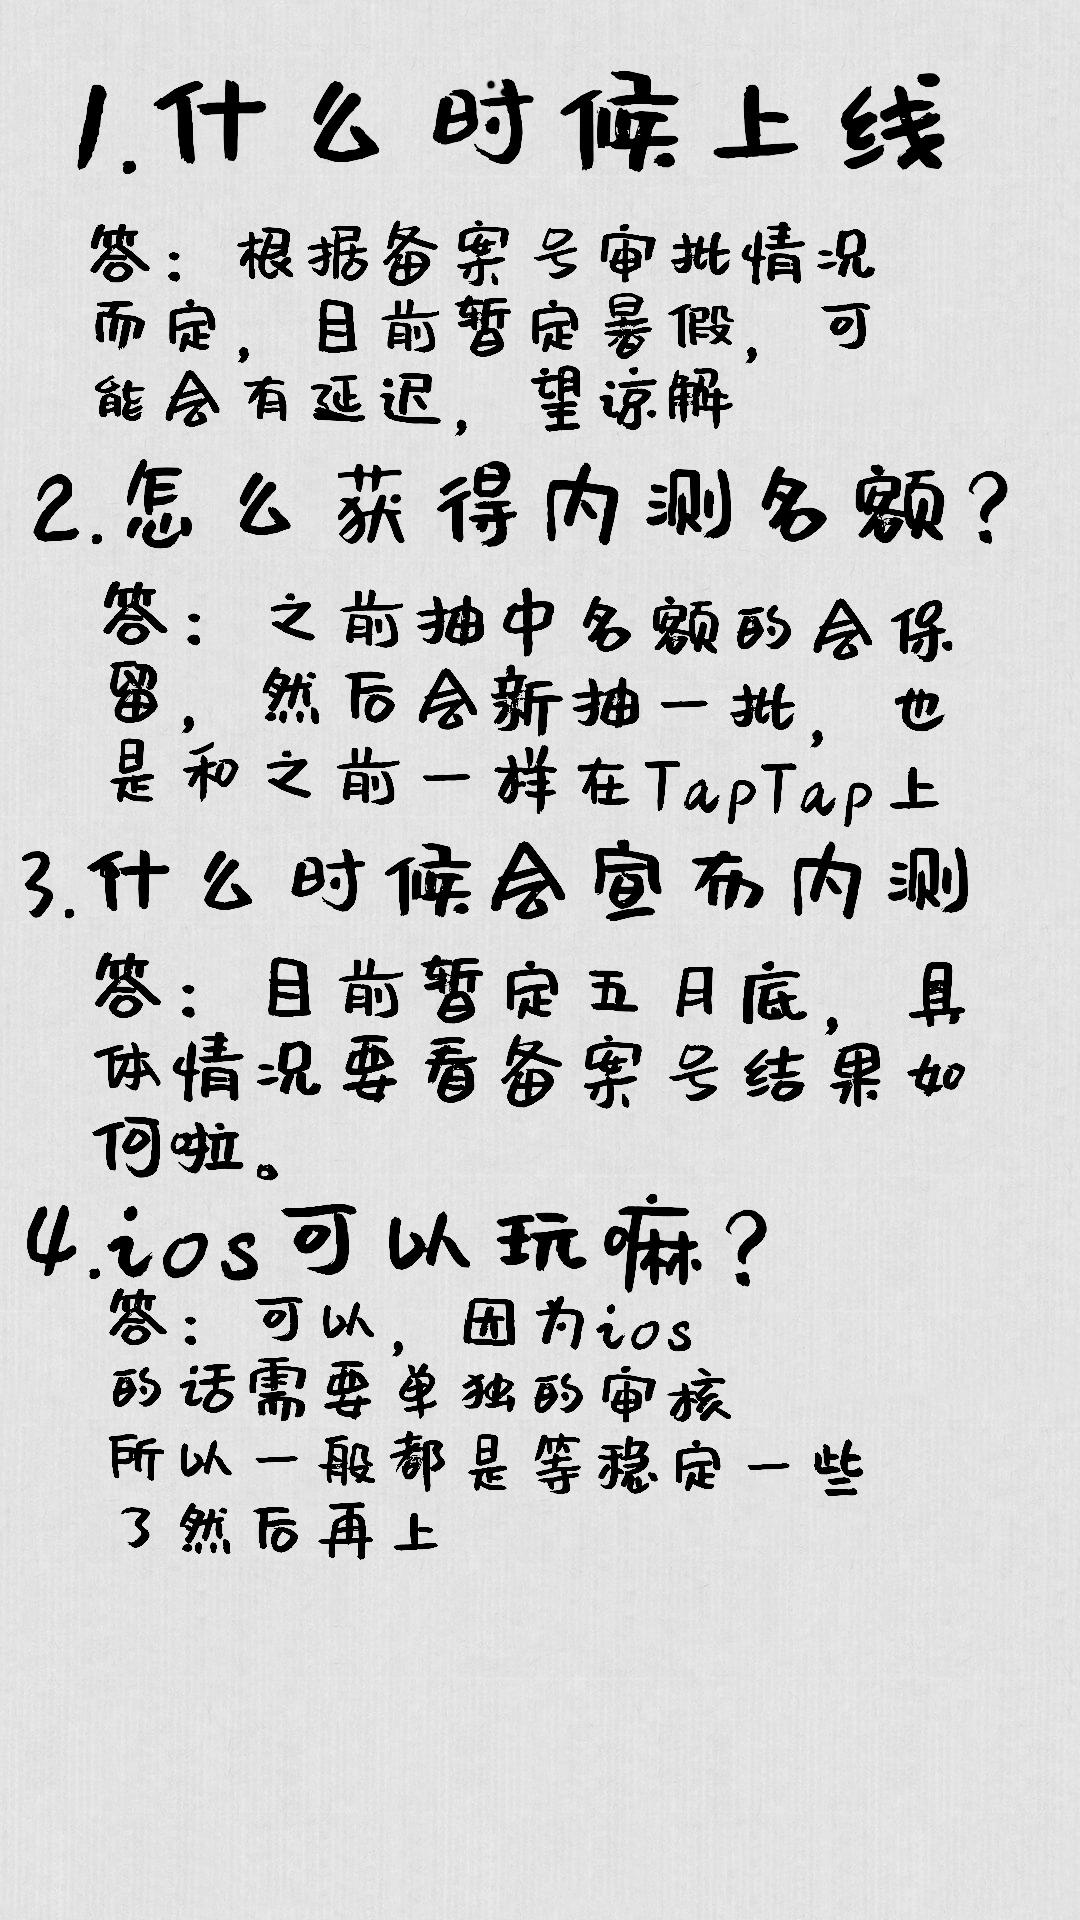 1.什么时候上线
答：根据备案号审批情况
而定，目前暂定暑假，可
能会有延迟，望谅解
2.怎么获得内测名额？
答：之前抽中名额的会保
留，然后会新抽一批，也
是和之前一样在TapTap上
3.什么时候会宣布内测
答：目前暂定五月底，具
体情况要看备案号结果如
何啦。
4.ios可以玩嘛？
答：可以，因为ios
的话需要单独的审核
所以一般都是等稳定一些
了然后再上